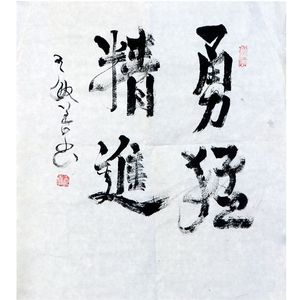 勇猛
精進